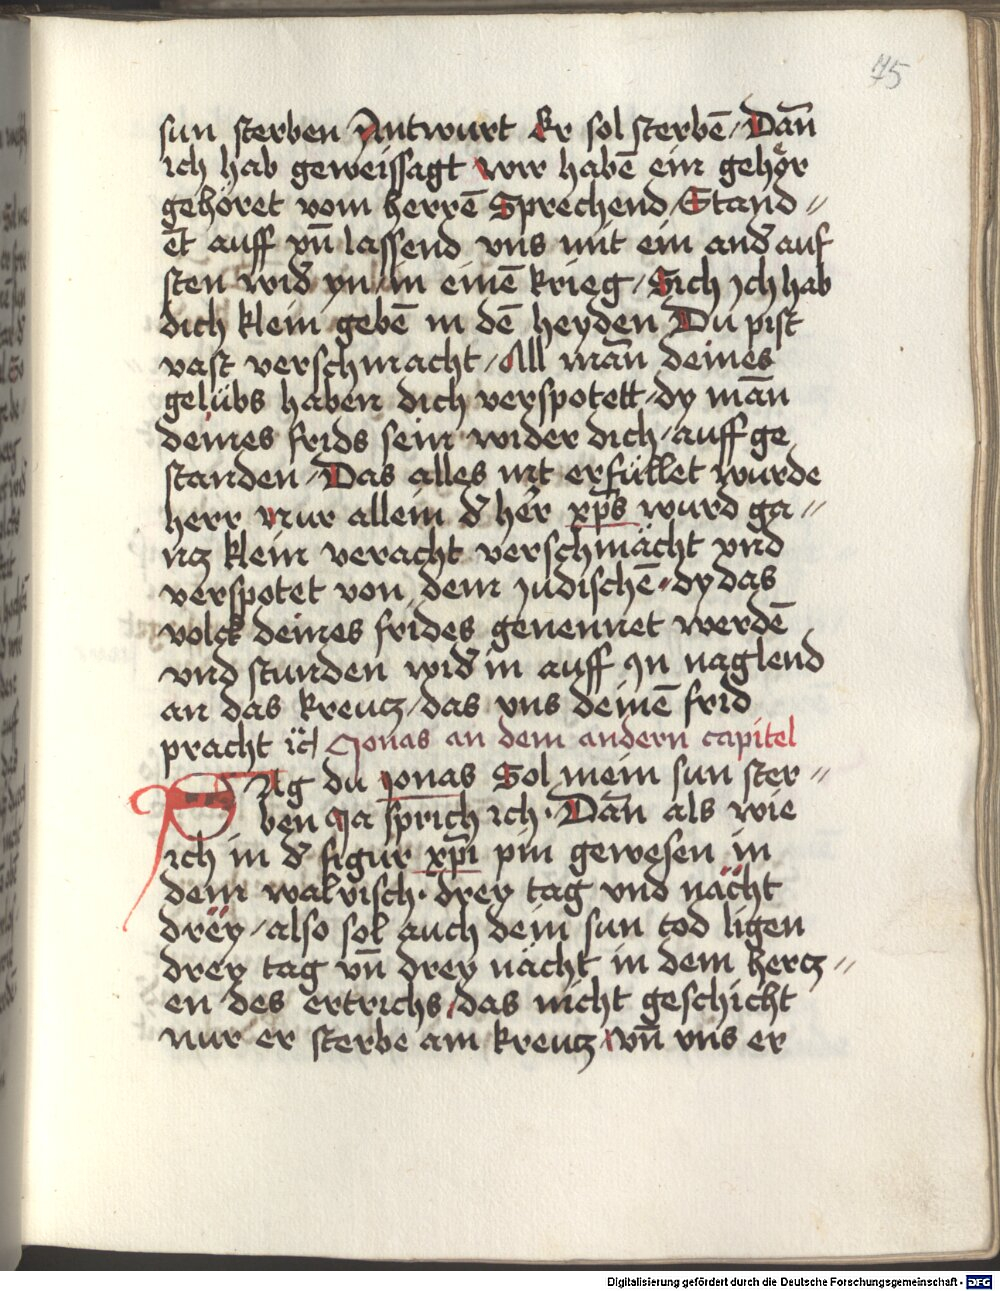 75
sun sterben Antwurt Er sol sterbē / Dan̄
ich hab geweissagt wir habē ein gehör
gehöret vom herrē Sprechend / Stand〃
ēt auff vn̄ lassend vns mit ein and̄ auf
sten wid̄ yn / in einē krieg / Sich ich hab
dich klein gebē in dē heyden Du pist
vast verschmacht / All man̄ deines
gelübs haben dich verspotett / dy man̄
deines frids sein wider dich / auff ge
standen / Das alles nit erfüllet wurde
herr nur allein d̄ her̄ xp̄s wurd ga〃
ncz klein veracht verschmächt vnd
verspotet von dem iudischē / dy das
volck deines frides genennet werdē
vnd stunden wid̄ in auff yn naglend
an das kreucz / das vns deinē frid
pracht ꝛc̄ Jonas an dem andern capitel
SAg du ionas Sol mein sun ster〃
ben Ja sprich ich · Dan̄ als wie
ich in d̄ figur xp̄i pin gewesen in
dem walvisch · drey tag vnd nächt
dreÿ / also sol auch dein sun tod ligen
drey tag vn̄ drey nächt in dem hercz〃
en des ertrichs / das nicht geschicht
nur er sterbe am kreucz / vn̄ vns er
Digitalisierung gefördert durch die Deutsche Forschungsgemeinschaft - DFG